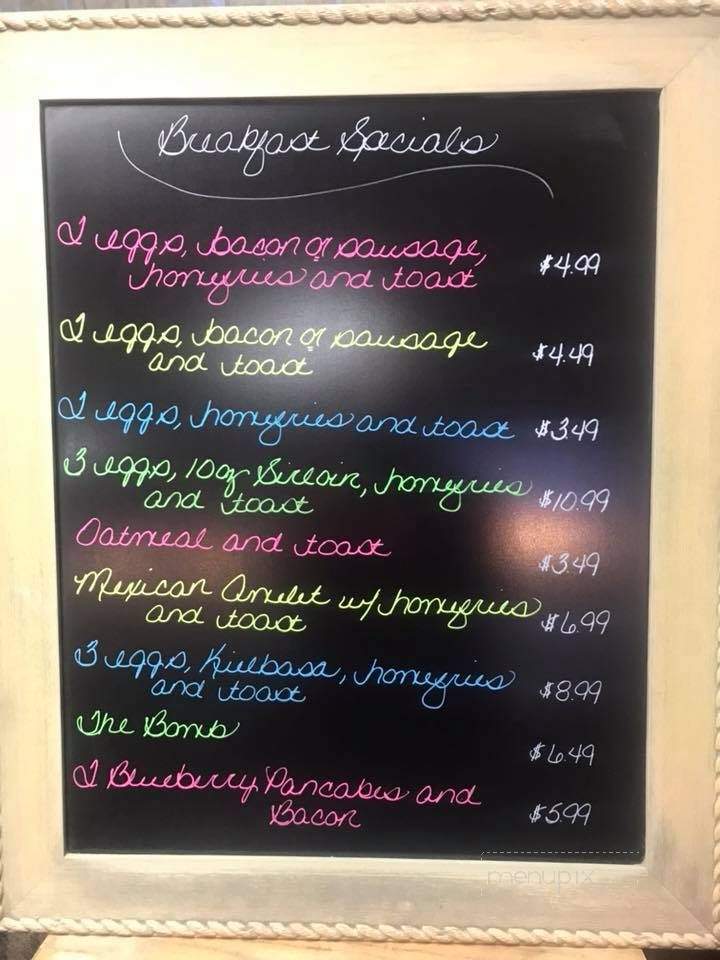 Breakfast Specials
2 eggs, bacon or sausage,
homefries and toast $4.99
2 eggs, bacon or sausage
and toast $4.49
2 eggs, homefries and toast $3.49
3 eggs, 10oz Sirloin, homefries
and toast $10.99
Oatmeal and toast $3.49
Mexican Omelet w/ homefries
and toast $6.99
3 eggs, Kielbasa, homefries
and toast $8.99
The Bomb $6.49
2 Blueberry Pancakes and
Bacon $5.99
menupix